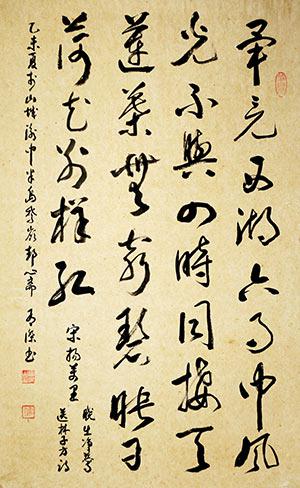 畢竟西湖六月中風
光不與四時同接天
蓮葉無窮碧映日
荷花别樣紅
宋楊萬里
曉出淨慈
送林子方詩
乙未夏於山城渝中半島鵝嶺心齋書